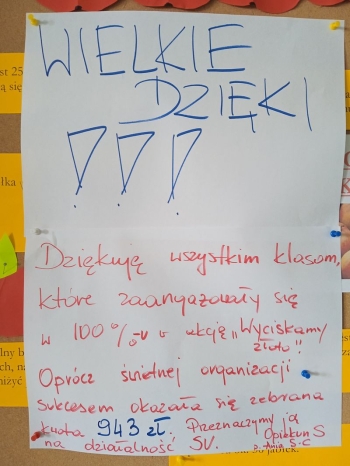 WIELKIE
DZIĘKI
!!!
Dziękuję wszystkim klasom,
które zaangażowały się
w 100%-u w akcję „Wyciskamy
złoto"!
Oprócz świetnej organizacji
sukcesem okazała się zebrana
kwota 943 zł. Przeznaczymy ją
na działalność SU. Opiekun S
st 25
ą się
łka